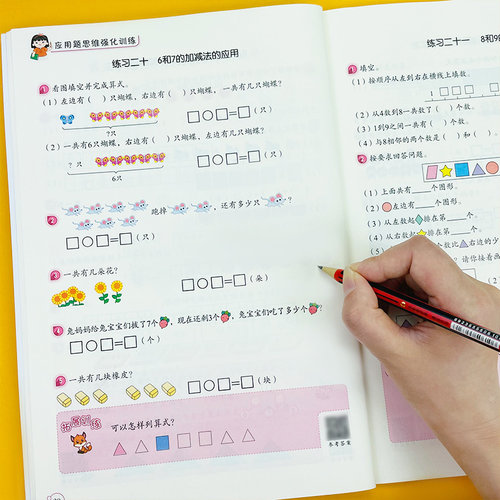 应用题思维强化训练
练习二十 6和7的加减法的应用
1 看图填空并完成算式。
(1) 左边有( )只蝴蝶, 右边有( )只蝴蝶, 一共有几只蝴蝶?
?只
□○□=□(只)
(2) 一共有6只蝴蝶, 右边有( )只蝴蝶, 左边有几只蝴蝶?
?只
6只
□○□=□(只)
2 跑掉 , 还有多少只 ?
□○□=□(只)
3 一共有几朵花?
□○□=□(朵)
4 兔妈妈给兔宝宝们拔了7个 , 现在还剩3个 , 兔宝宝们吃了多少个 ?
□○□=□(个)
5 一共有几块橡皮?
□○□=□(块)
拓展训练
可以怎样列算式?
参考答案
练习二十一 8和9
1 填空。
(1) 按顺序从左到右在横线上填数。
1 □□□
(2) 从4数到8一共数了( )个数。
(3) 1到9之间一共有( )个数。
(4) 与8相邻的两个数是( )和( )。
2 按要求回答问题。
(1) 上面共有____个图形。
(2) 左边有____个图形。
(3) 从左数起 排在第____个。
(4) 从右数起 排在第____个
(5)
个数比 右边的少
请你接着画